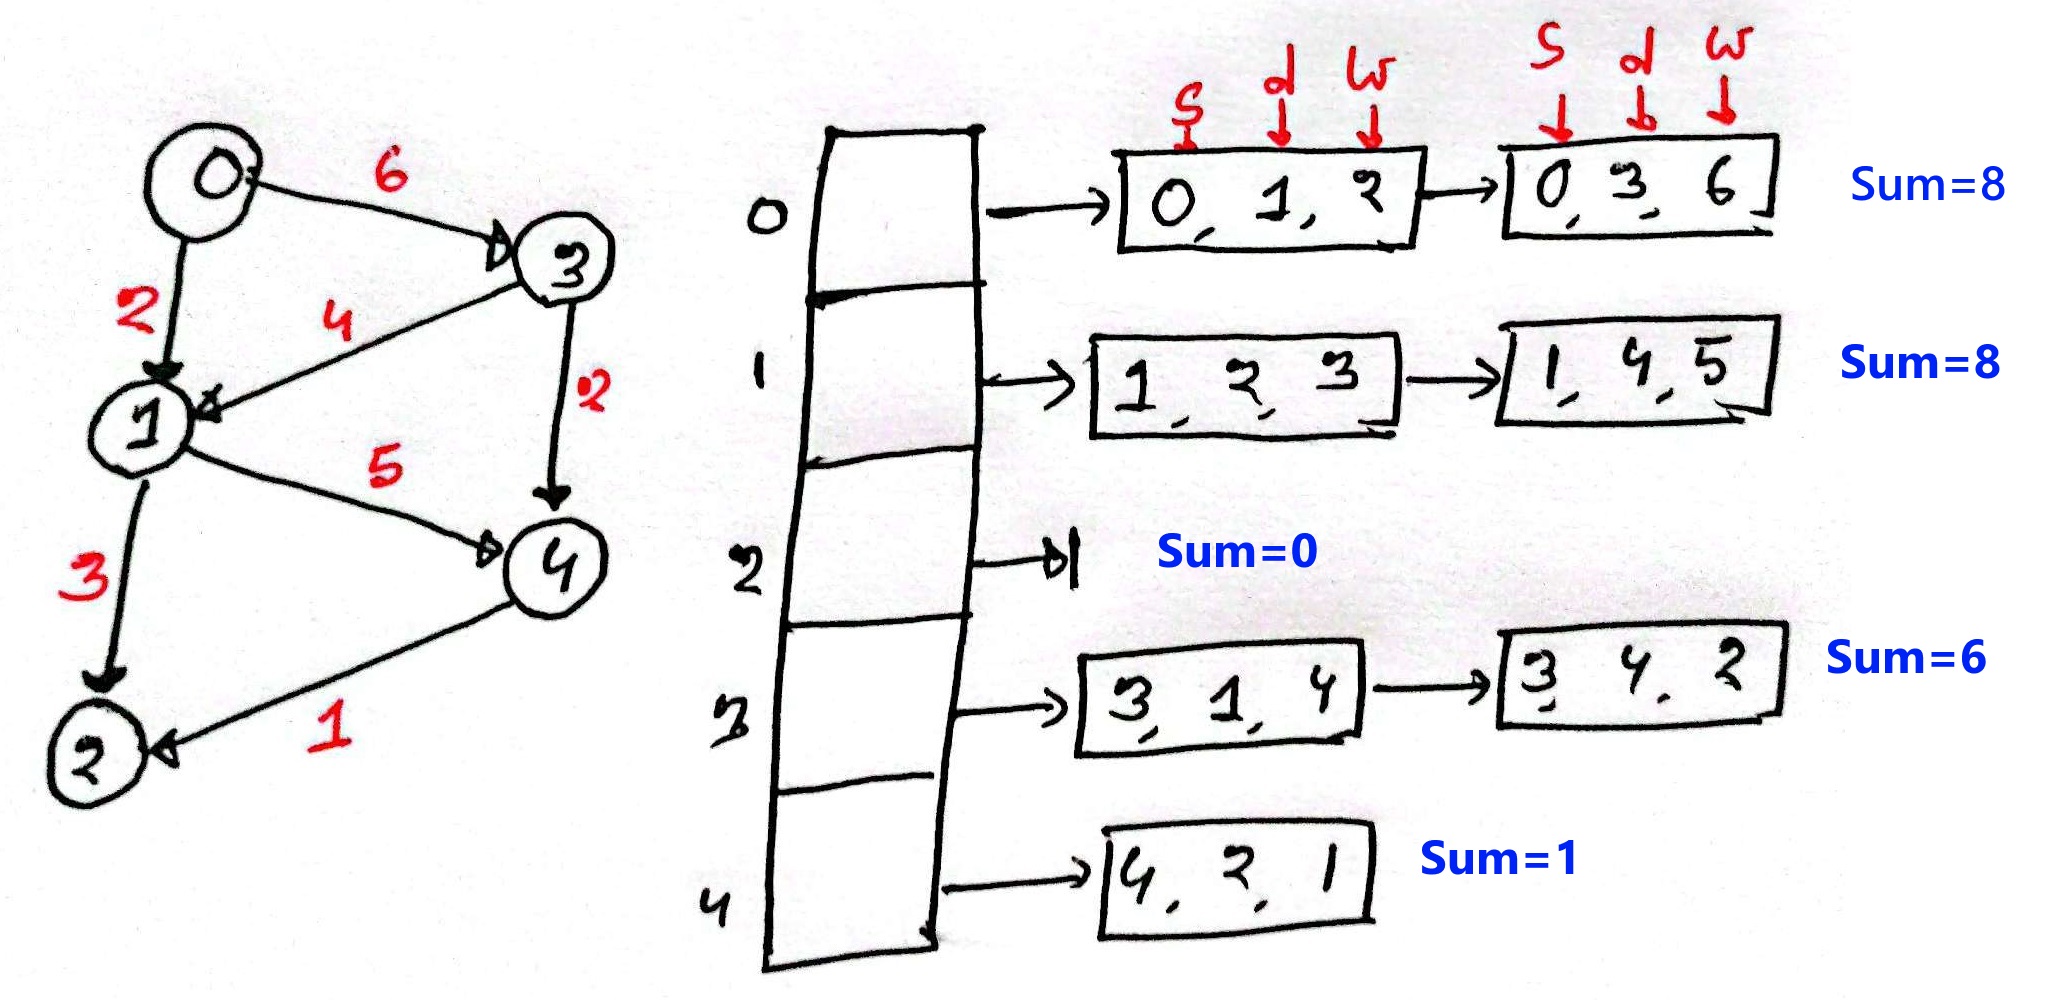 0
6
3
2
4
2
1
5
3
4
1
2
S d w S d w
0 0, 1, 2 0, 3, 6 Sum=8
1 1, 2, 3 1, 4, 5 Sum=8
2 Sum=0
3 3, 1, 4 3, 4, 2 Sum=6
4 4, 2, 1 Sum=1